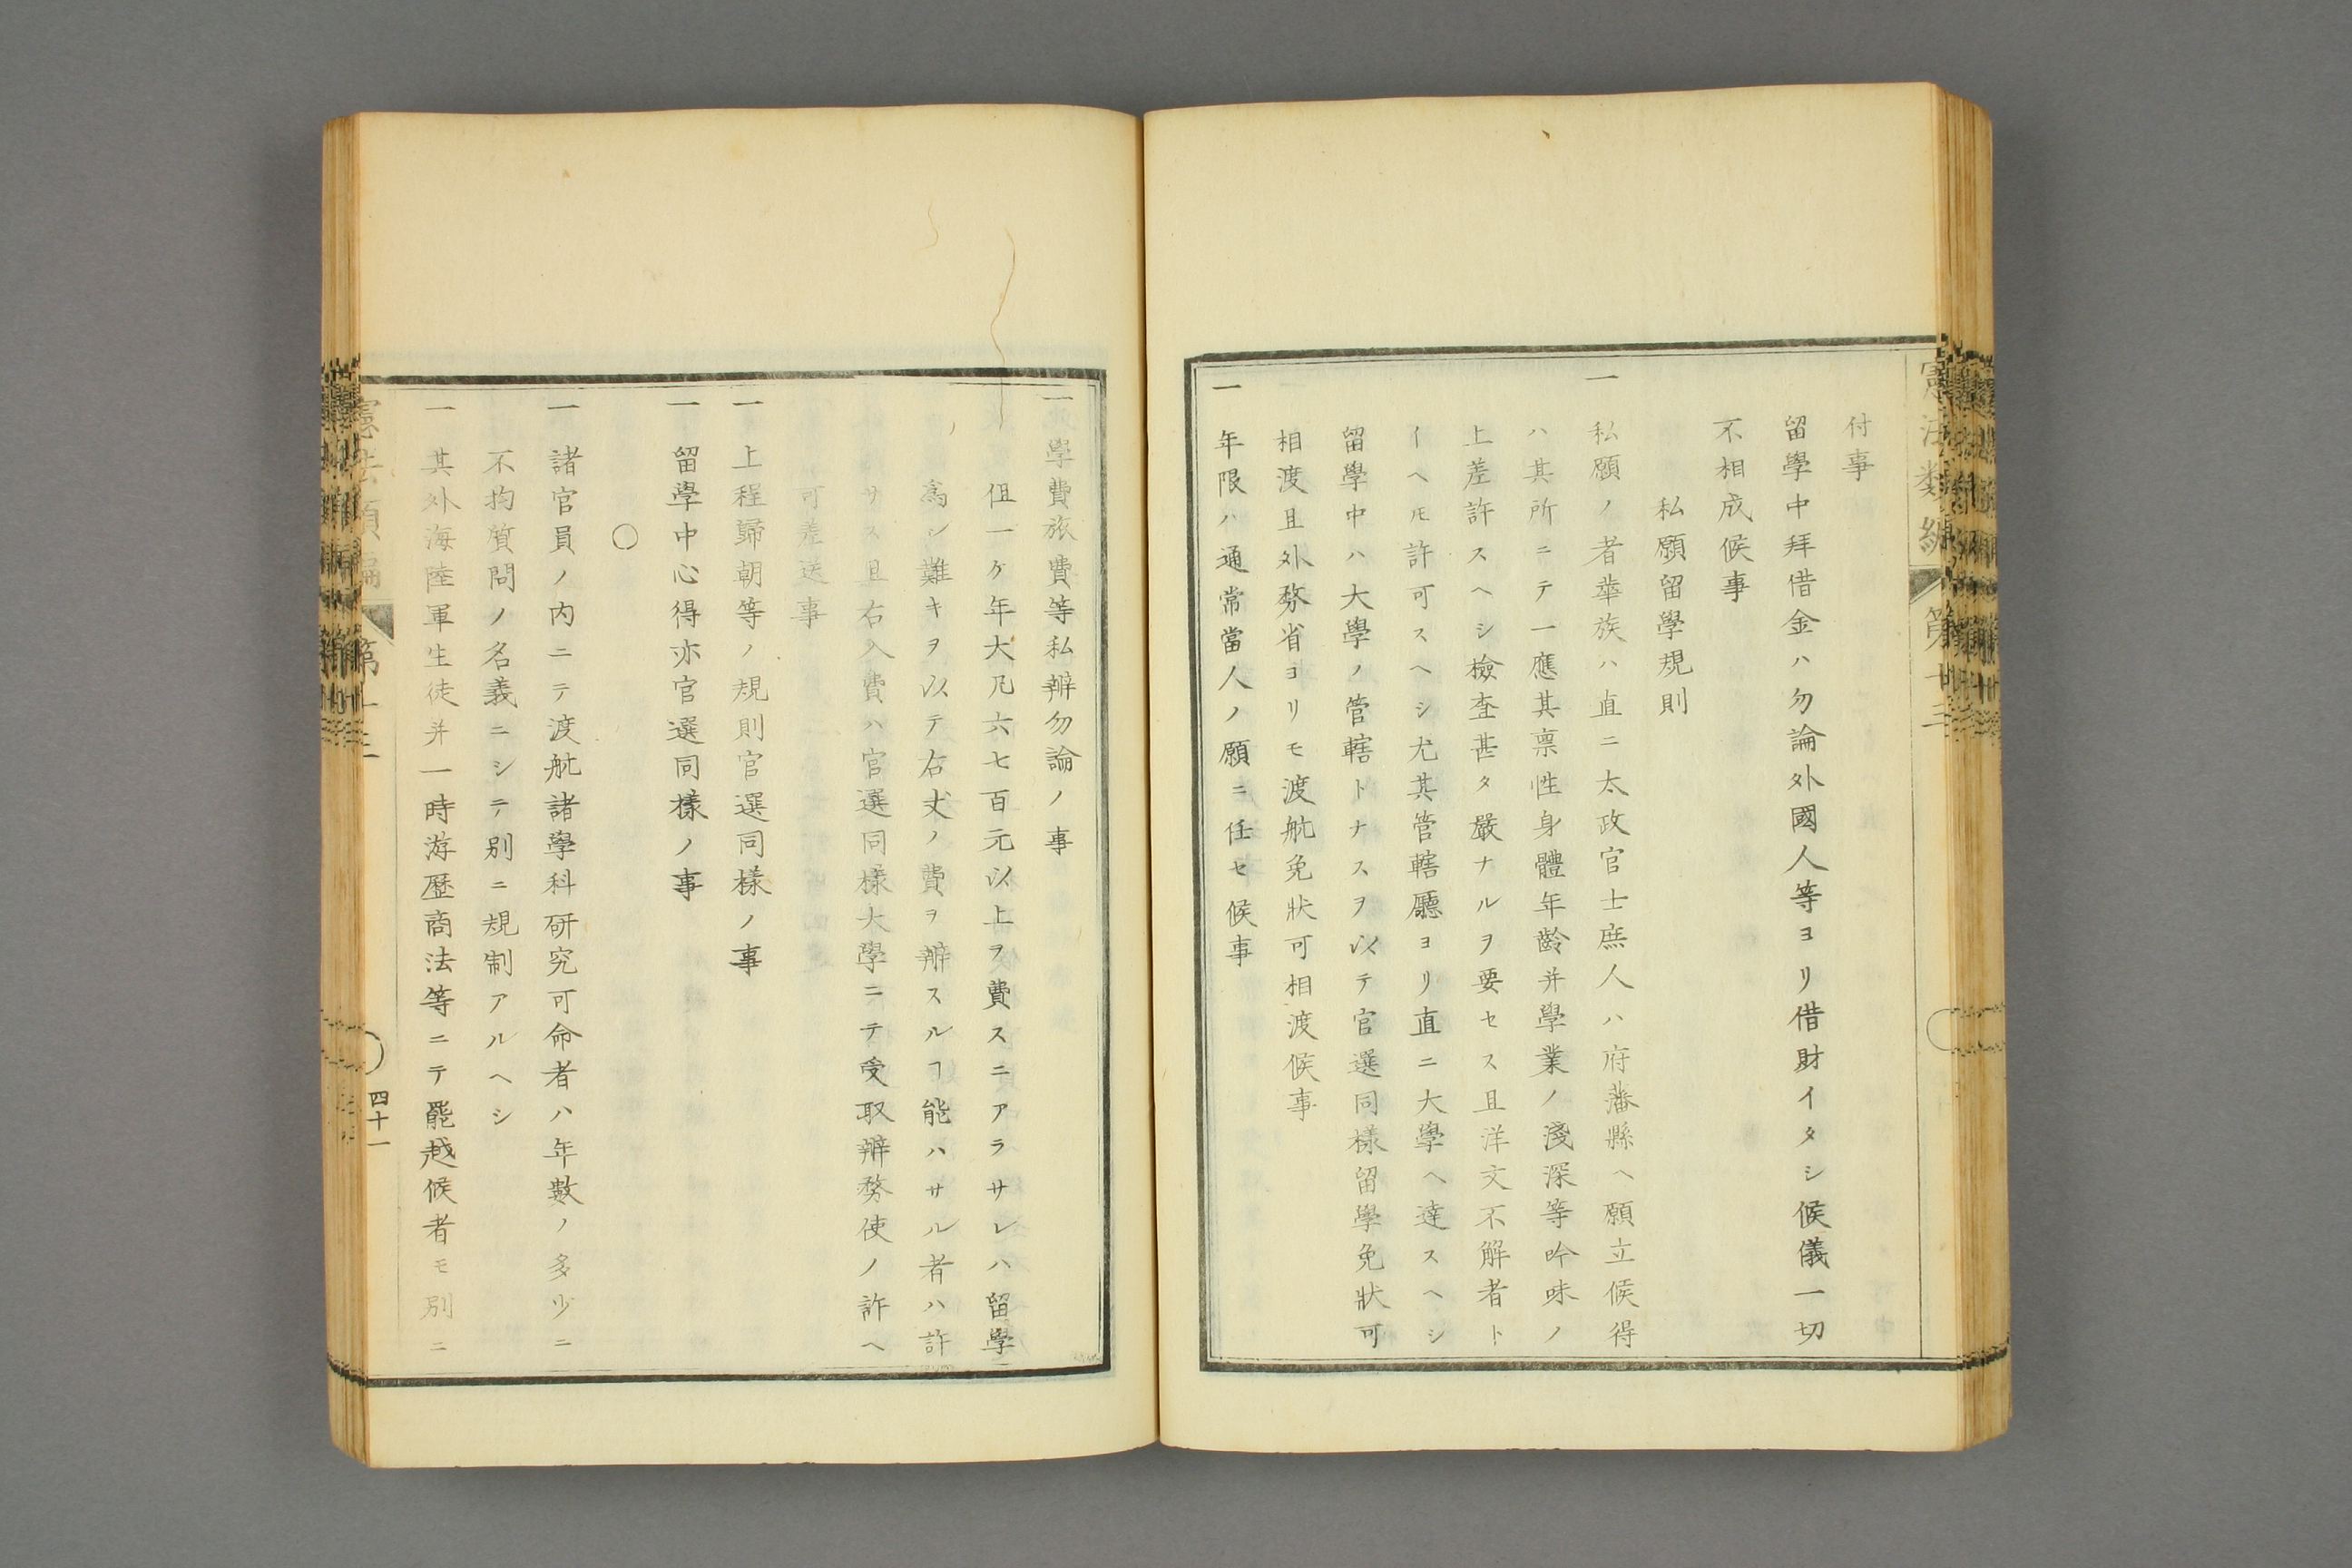 憲法類編 第十三
付事
留學中拜借金ハ勿論外國人等ヨリ借財イタシ候儀一切
不相成候事
私願留學規則
一 私願ノ者華族ハ直ニ太政官士庶人ハ府藩縣ヘ願立候得
ハ其所ニテ一應其禀性身體年齡并學業ノ淺深等吟味ノ
上差許スヘシ檢査甚タ嚴ナルヲ要セス且洋文不解者ト
イヘ𪜈許可スヘシ尤其管轄廳ヨリ直ニ大學ヘ達スヘシ
留學中ハ大學ノ管轄トナスヲ以テ官選同樣留學免狀可
相渡且外務省ヨリモ渡航免狀可相渡候事
一 年限ハ通常當人ノ願ニ任セ候事
一 學費旅費等私辨勿論ノ事
但一ケ年大凡六七百元以上ヲ費スニアラサレハ留學
爲シ難キヲ以テ右丈ノ費ヲ辨スルヿ能ハサル者ハ許
サス且右入費ハ官選同樣大學ニテ受取辨務使ノ許ヘ
可差送事
一 上程歸朝等ノ規則官選同樣ノ事
一 留學中心得亦官選同樣ノ事
○
一 諸官員ノ内ニテ渡航諸學科研究可命者ハ年數ノ多少ニ
不拘質問ノ名義ニシテ別ニ規制アルヘシ
一 其外海陸軍生徒并一時游歷商法等ニテ罷越候者モ別ニ
憲法類編 第十三
四十一